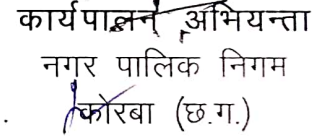 कार्यपालन अभियन्ता
नगर पालिक निगम
कोरबा (छ.ग.)